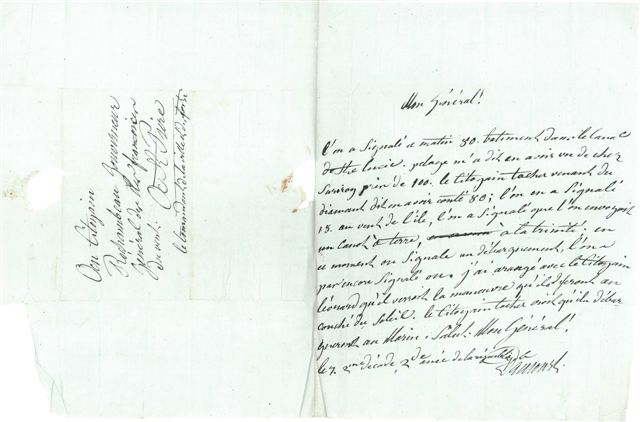 Au Citoyen
Rochambeau Gouverneur
Général des Isles françaises
du vent. A St. Pre.
le Comandant de la ville
Mon Général!
l'on a Signalé ce matin 30. batiment dans le Canal
de Ste lucie. pelage m'a dit en avoir vu de chez
près de 100. le Citoyen tacher venant du
diamant dit en avoir conté 80; l'on en a Signalé
18. au vent de l'ile, l'on a Signalé que l'on envoyoit
un Canot à terre, à la trinité. en
ce moment on Signale un débarquement, l'on a
pas encore Signalé ou. j'ai arrangé avec le Citoyen
léonard qu'il verroit la manoeuvre qu'ils feront au
couché du Soleil. le Citoyen tacher croit qu'ils débar-
queront au Marin. Salut. Mon Général!
le 2me décade, 2de année de la république